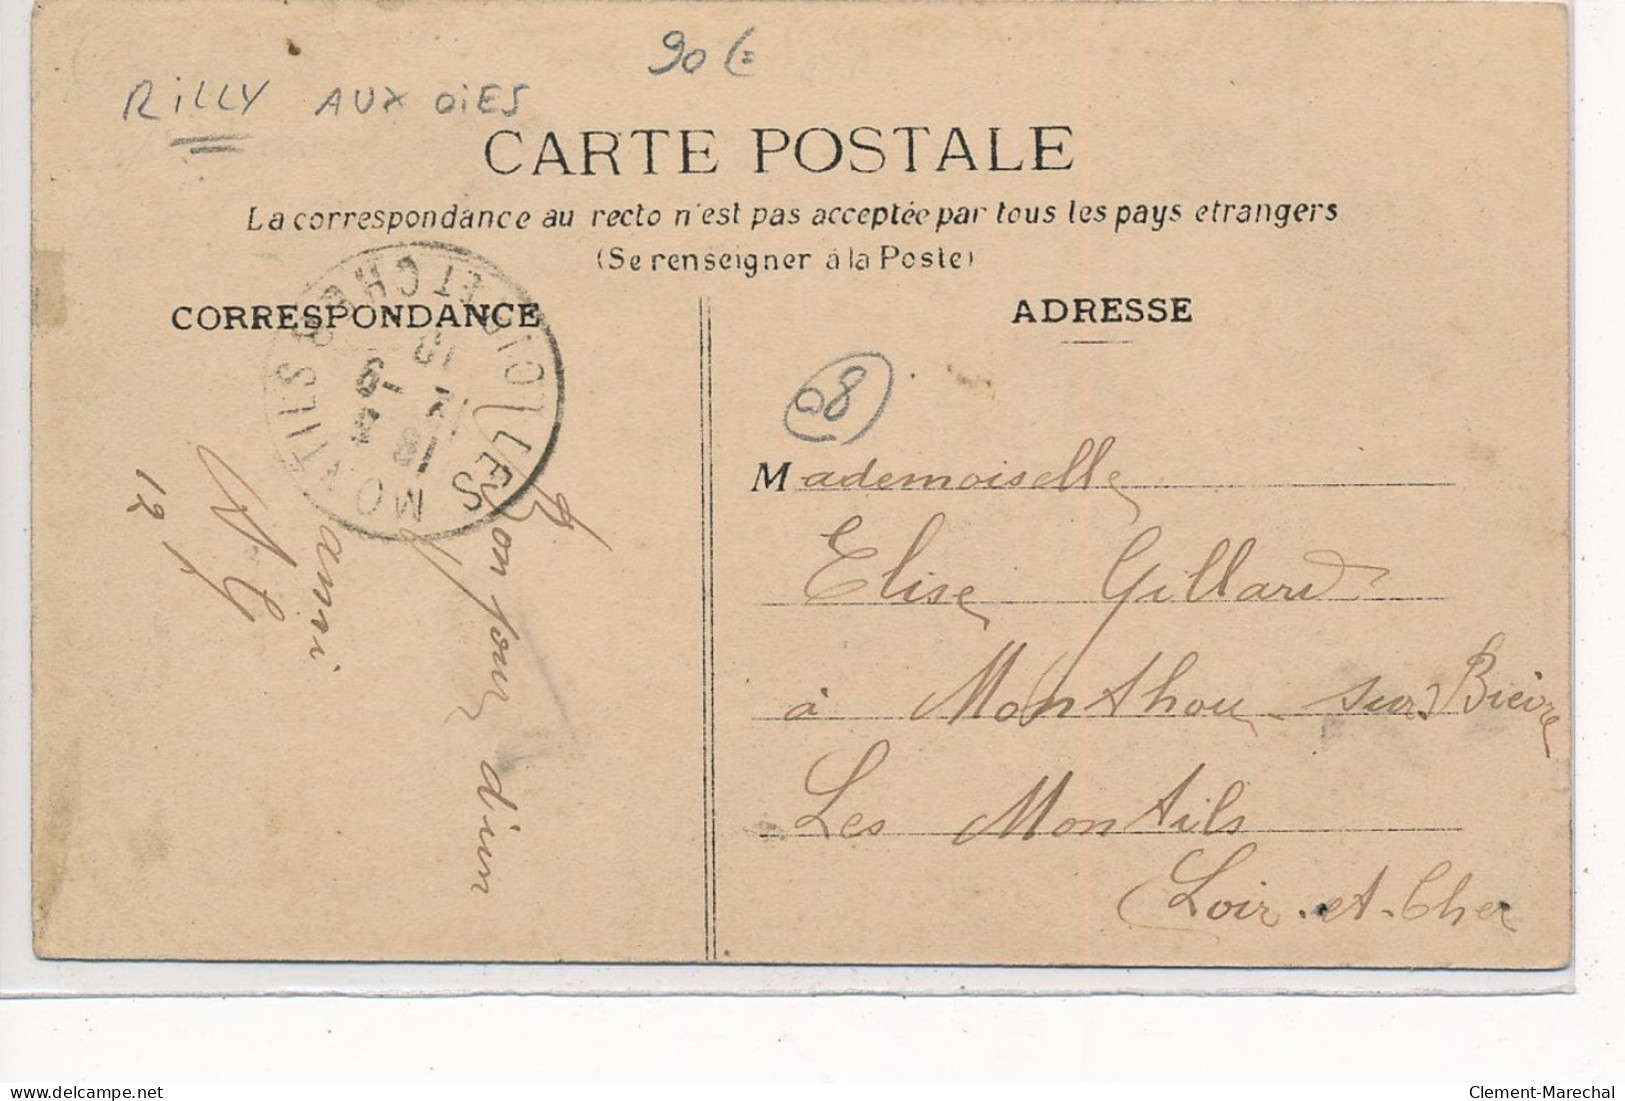 RILLY AUX OIES
90 €
CARTE POSTALE
La correspondance au recto n'est pas acceptée par tous les pays etrangers
(Se renseigner à la Poste)
CORRESPONDANCE
ADRESSE
08
LES MONTILS
LOIR-ET-CHER
Bonjour d'un
ami
Mademoiselle
Elise Gillard
à Monthou sur Bièvre
Les Montils
Loir-et-Cher
delcampe.net
Clement-Marechal